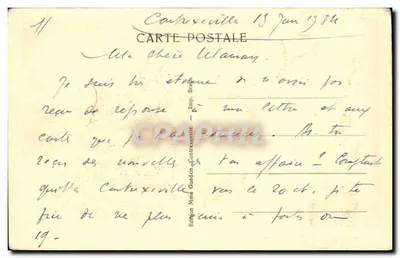 11
Contrexeville 13 Juin 1934
CARTE POSTALE
Ma chère Maman,
Je suis très étonné de n'avoir pas
reçu de réponse à ma lettre et aux
carte que As-tu
reçu des nouvelles de ton affaire? Comptant
quitter Contrexeville vers ce 20 ct. je te
prie de ne plus à
19 -
Edition Mme Guédin, Contrexeville - Imp.